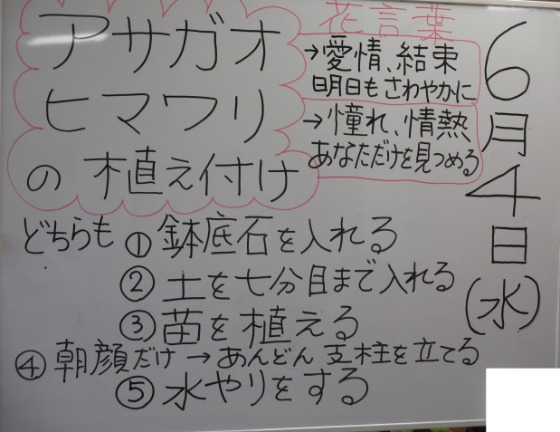 6月4日(水)
アサガオ
ヒマワリ
の植え付け
花言葉
→愛情、結束
明日もさわやかに
→憧れ、情熱
あなただけを見つめる
どちらも ①鉢底石を入れる
②土を七分目まで入れる
③苗を植える
④朝顔だけ→あんどん支柱を立てる
⑤水やりをする